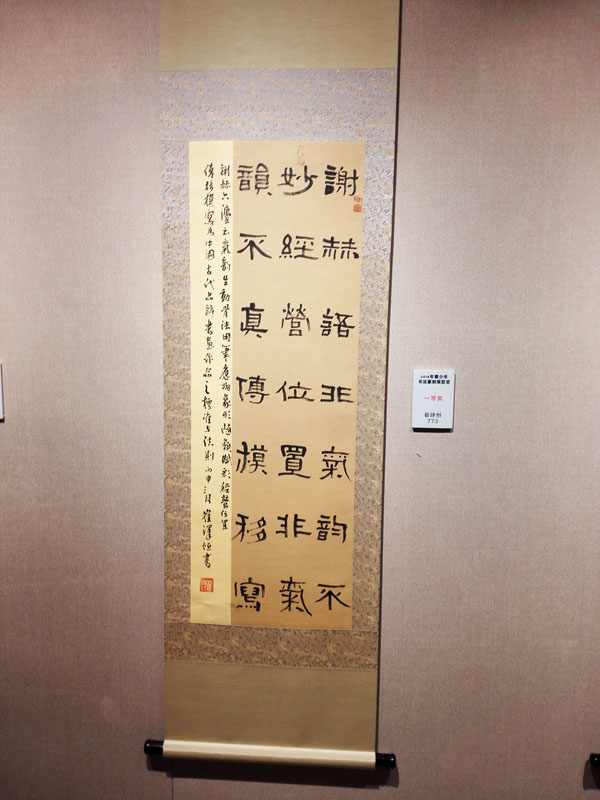 謝赫語非氣韵不
妙經營位置非氣
韻不真傳模移寫
謝赫六灋云氣韵生動骨法用筆應物象形隨類賦彩經營位置
傳移模寫為中國古代品評書畫作品之標準与法則丙申三月崔澤恒書
2016年青少年
书法篆刻展获奖
一等奖
崔泽恒
773